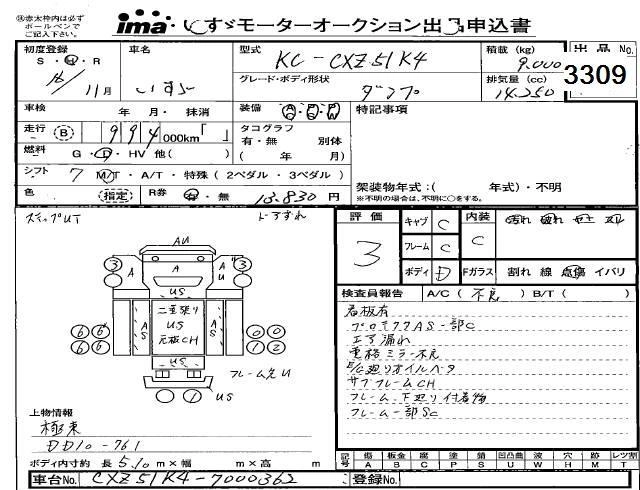 ※赤太枠内は必ず
ボールペンで
ご記入下さい。
ima いすゞモーターオークション出品申込書
初度登録
S・H・R
11月
車名
いすゞ
型式
KC-CXZ51K4
グレード・ボディ形状
ダンプ
積載 (kg)
9.000
排気量 (cc)
14.250
出品No.
3309
車検 年 月・抹消
走行 B 994 000km「 」
燃料 G・D・HV 他( )
シフト 7 M/T・A/T・特殊(2ペダル・3ペダル)
色 指定 R券 有・無 13.830 円
装備 A/C P/S P/W
タコグラフ
有・無 別体
( 年 月)
特記事項
架装物年式:( 年式)・不明
※不明の場合は、不明に○をする。
ステップUT
ドアすれ
AU
3 A A A U 3
US
二重張り
US
元板CH
A S
A S
6 6 0 0
6 6 1 2
US
フレーム先U
1 US
上物情報
極東
DD10-761
ボディ内寸約 長 5.10 m×幅 m×高 m
評価
3
キャブ C
フレーム C
ボディ D
内装
C
汚れ 破れ
Fガラス 割れ 線 点傷 イバリ
検査員報告 A/C ( 不良 ) B/T ( )
看板有
プロミクアAS一部C
エア漏れ
電格ミラー不良
E/G廻りオイルベタ
サブフレームCH
フレーム、下廻り付着物
フレーム一部SC
記号 傷 板金 腐 塗 錆 凹凸曲 波 穴 跡 レツ割
A B C P S U W H M T
車台No. CXZ51K4-7000362 登録No.